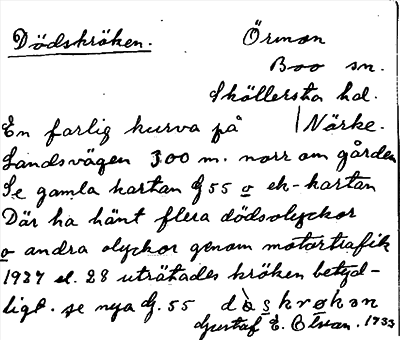 Dödskröken. Örman
Boo sn.
Sköllersta hd.
En farlig kurva på | Närke.
Landsvägen 300 m. norr om gården
Se gamla kartan G 55 o ek-kartan
Där ha hänt flera dödsolyckor
o andra olyckor genom motortrafik
1927 el. 28 uträtades kröken betyd-
ligt. se nya G. 55 döskrøkan
Gustaf E. Olsson. 1933